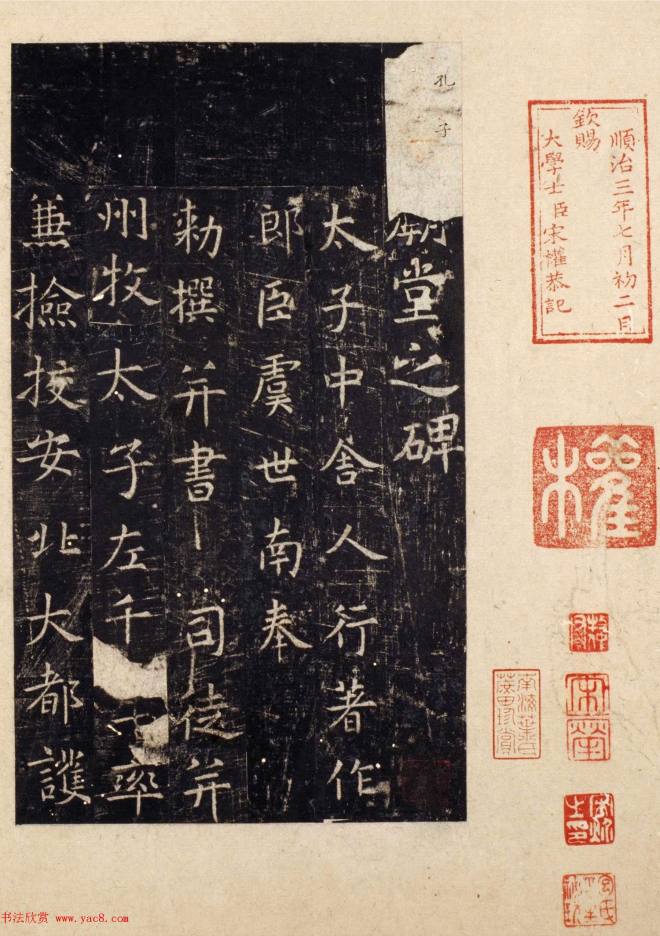 順治三年七月初二日
欽賜
大學士臣宋權恭記
權
孔子
廟堂之碑
太子中舍人行著作
郎臣虞世南奉
勑撰并書 司徒并
州牧太子左千 率
兼撿挍安北大都護
书法欣赏 www.yac8.com